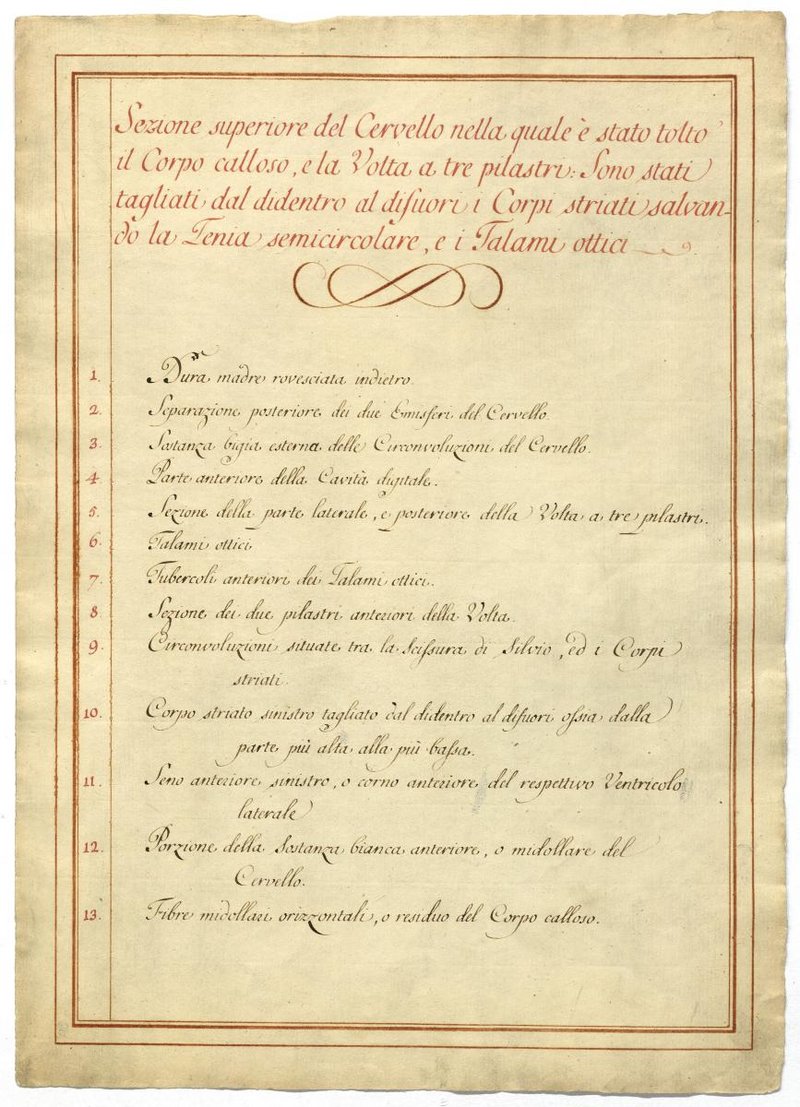 Sezione superiore del Cervello nella quale è stato tolto
il Corpo calloso, e la Volta a tre pilastri: Sono stati
tagliati dal didentro al difuori i Corpi striati salvan-
do la Tenia semicircolare, e i Talami ottici
1. Dura madre rovesciata indietro.
2. Separazione posteriore dei due Emisferi del Cervello.
3. Sostanza bigia esterna delle Circonvoluzioni del Cervello.
4. Parte anteriore della Cavità digitale.
5. Sezione della parte laterale, e posteriore della Volta a tre pilastri.
6. Talami ottici
7. Tubercoli anteriori dei Talami ottici.
8. Sezione dei due pilastri anteriori della Volta.
9. Circonvoluzioni situate tra la Scissura di Silvio, ed i Corpi
striati.
10. Corpo striato sinistro tagliato dal didentro al difuori ossia dalla
parte più alta alla più bassa.
11. Seno anteriore sinistro, o corno anteriore del respettivo Ventricolo
laterale
12. Porzione della Sostanza bianca anteriore, o midollare del
Cervello.
13. Fibre midollari orizzontali, o residuo del Corpo calloso.